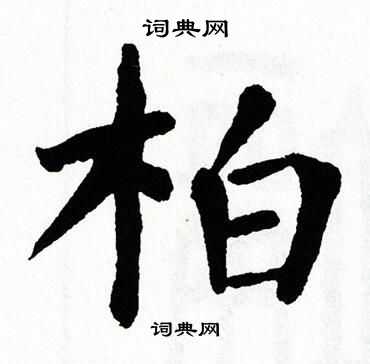 词典网
柏
词典网